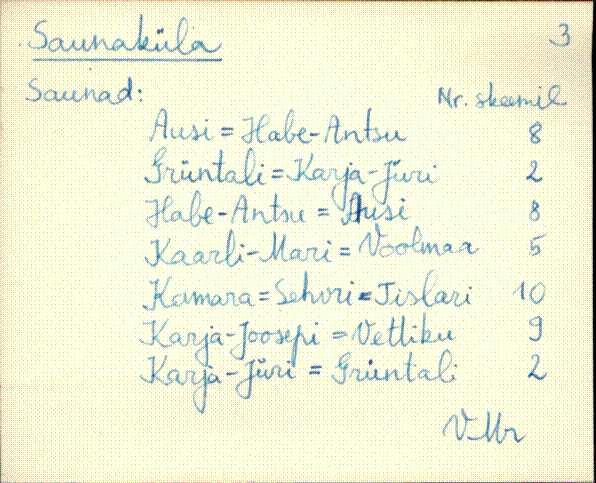 Saunaküla 3
Saunad: Nr. skeemil
Ausi = Habe-Antsu 8
Grüntali = Karja-Jüri 2
Habe-Antsu = Ausi 8
Kaarli-Mari = Voolmaa 5
Kamara = Sehvri = Tislari 10
Karja-Joosepi = Vetliku 9
Karja-Jüri = Grüntali 2